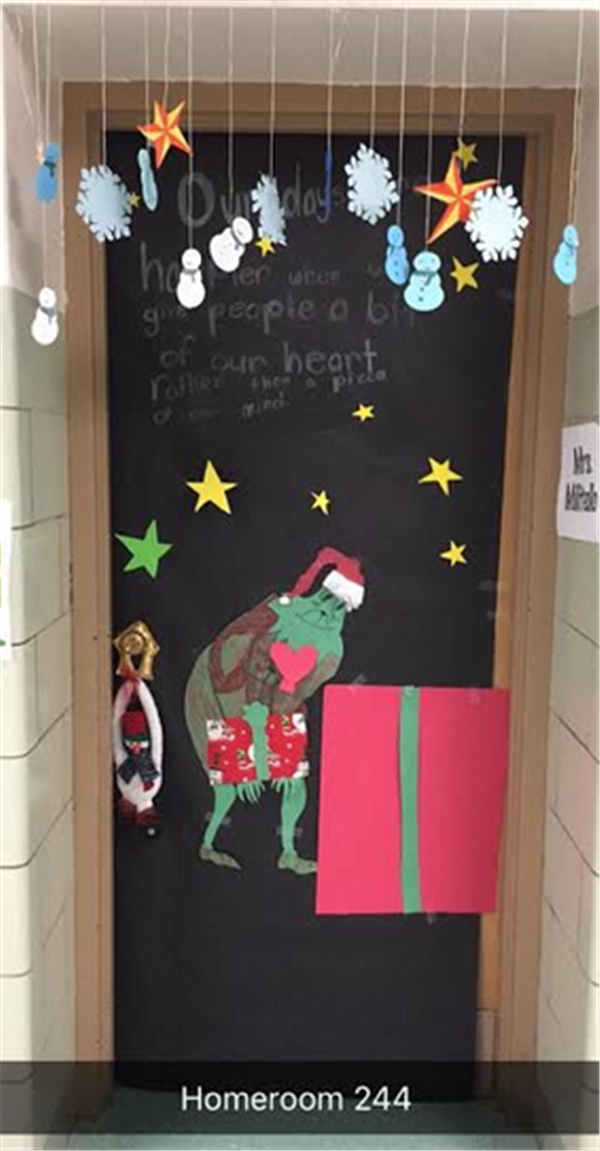 Our days
happier when
give people a bit
of our heart
rather than a piece
of our mind.
Mrs.
Homeroom 244